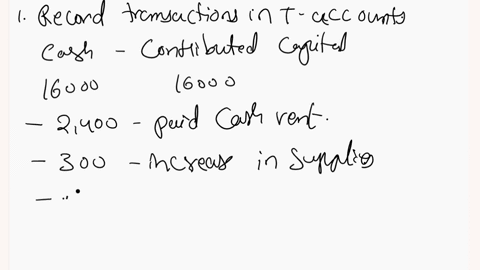 1. Record transactions in T-accounts
Cash - Contributed Capital
16000 16000
- 2,400 - paid Cash rent.
- 300 - increase in Supplies
-